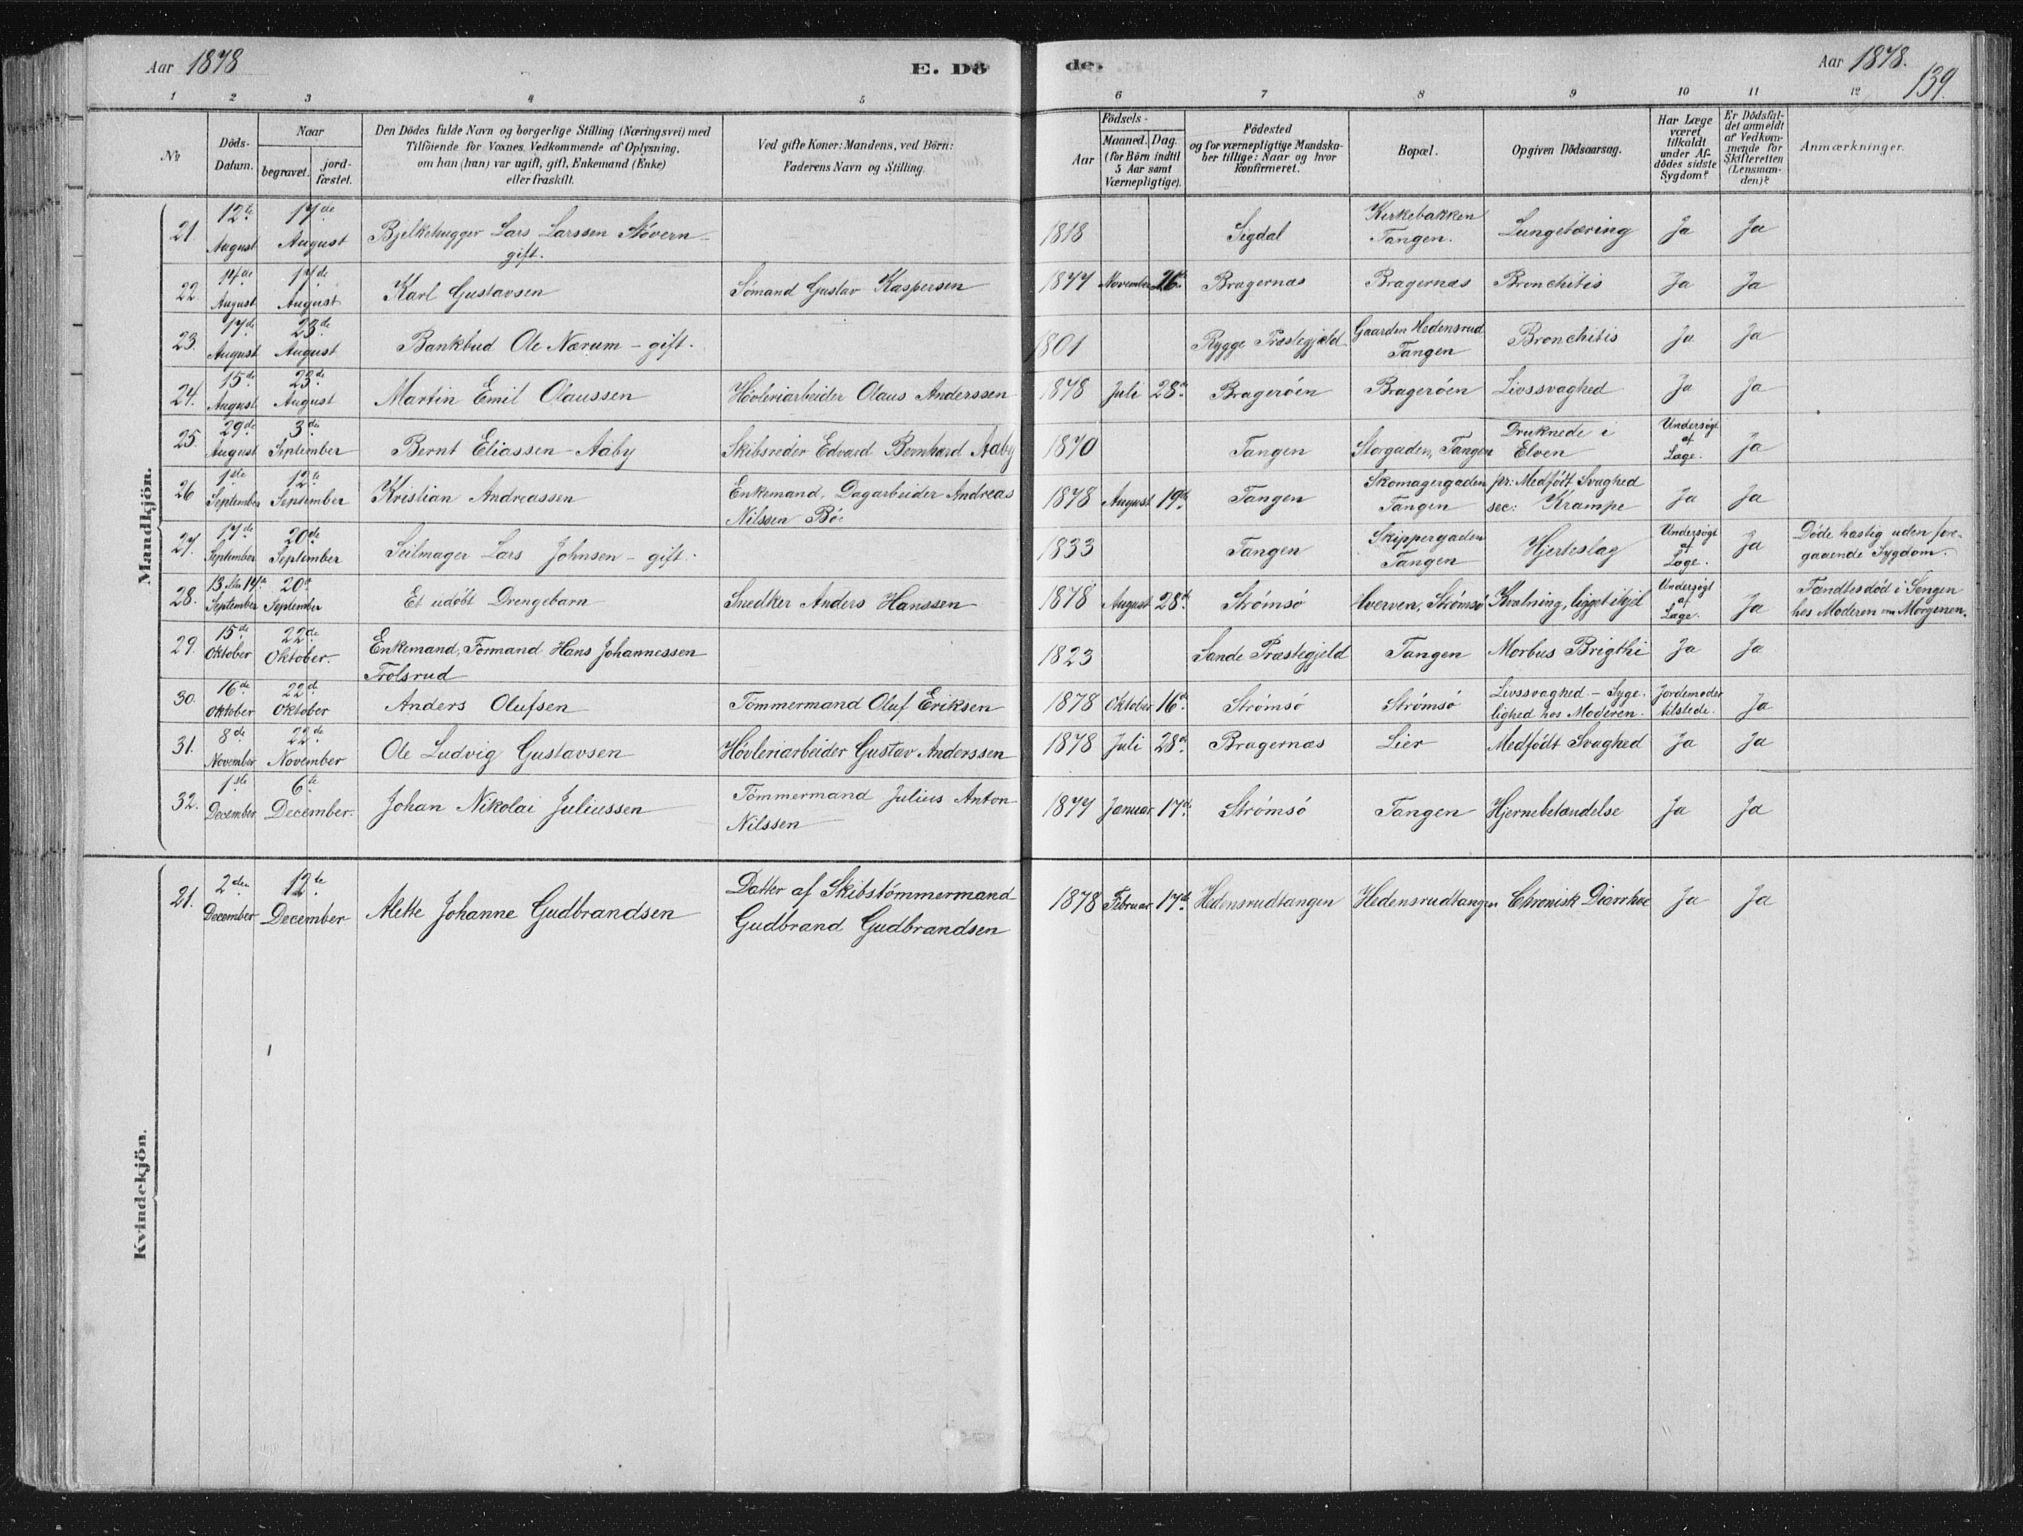 Aar 1878
E. Dö
de.
Aar 1878.
139.
1 2 3 4 5 6 7 8 9 10 11 12
No
Döds-
Datum.
Naar
begravet.
jord-
fæstet.
Den Dödes fulde Navn og borgerlige Stilling (Næringsvei) med
Tilföiende for Voxnes Vedkommende af Oplysning,
om han (hun) var ugift, gift, Enkemand (Enke)
eller fraskilt.
Ved gifte Koner: Mandens, ved Börn:
Faderens Navn og Stilling.
Födsels-
Aar
Maaned. Dag.
(for Börn indtil
5 Aar samt
Værnepligtige).
Födested
og for værnepligtige Mandska-
ber tillige: Naar og hvor
konfirmeret.
Bopæl.
Opgiven Dödsaarsag.
Har Læge
været
tilkaldt
under Af-
dödes sidste
Sygdom?
Er Dödsfal-
det anmeldt
af Vedkom-
mende for
Skifteretten
(Lensman-
den)?
Anmærkninger.
Mandkjön.
21. 12te August 17de August Bjelkehugger Lars Larssen Støvern
gift.
1818 Sigdal Kirkebakken
Tangen. Lungetæring Ja Ja
22. 14de August 17de August Karl Gustavsen Sömand Gustav Kaspersen 1877 November 26. Bragernæs Bragernæs Bronchitis Ja Ja
23. 17de August 23de August Bankbud Ole Nærum - gift. 1801 Rygge Præstegjeld Gaarden Hedensrud
Tangen Bronchitis Ja Ja
24. 15de August 23de August Martin Emil Olaussen Høvleriarbeider Olaus Anderssen 1878 Juli 28de Bragerøen Bragerøen Livssvaghed Ja Ja
25. 29de August 3die September Bernt Eliassen Aaby Skibsreder Edvard Bernhard Aaby 1870 Tangen Storgaden, Tangen Druknede i
Elven Undersøgt
af
Læge. Ja
26 1ste September 12te September Kristian Andreassen Enkemand, Dagarbeider Andreas
Nilssen Bö 1878 August 19de Tangen Skomagergaden
Tangen pr: Medfødt Svaghed
sec: Krampe Ja Ja
27. 17de September 20de September Seilmager Lars Johnsen - gift. 1833 Tangen Skippergaden
Tangen Hjerteslag Undersøgt
af
Læge. Ja Døde hastig uden fore-
gaaende Sygdom.
28. 13 14de September 20de September Et udøbt Drengebarn Snedker Anders Hanssen 1878 August 28de Strømsø Hverven, Strømsø Kvalning, ligget ihjel Undersøgt
af
Læge. Ja Fandtes død i Sengen
hos Moderen om Morgenen.
29. 15de Oktober 22de Oktober. Enkemand, Formand Hans Johannessen
Trolsrud 1823 Sande Præstegjeld Tangen Morbus Brigthi Ja Ja
30. 16de Oktober 22de Oktober Anders Olufsen Tömmermand Oluf Eriksen 1878 Oktober 16de Strømsø Strømsø Livssvaghed - Syge-
lighed hos Moderen. Jordemoder
tilstede. Ja
31. 8de November 22de November Ole Ludvig Gustavsen Høvleriarbeider Gustav Anderssen 1878 Juli 28de Bragernæs Lier Medfødt Svaghed Ja Ja
32. 1ste December 6te December. Johan Nikolai Juliussen Tömmermand Julius Anton
Nilssen 1877 Januar 17de Strømsø Tangen Hjernebetændelse Ja Ja
Kvindekjön.
21. 2den December 12te December Alette Johanne Gudbrandsen Datter af Skibstömmermand
Gudbrand Gudbrandsen 1878 Februar 17de Hedensrudtangen Hedensrudtangen Chronisk Diarrhoe Ja Ja